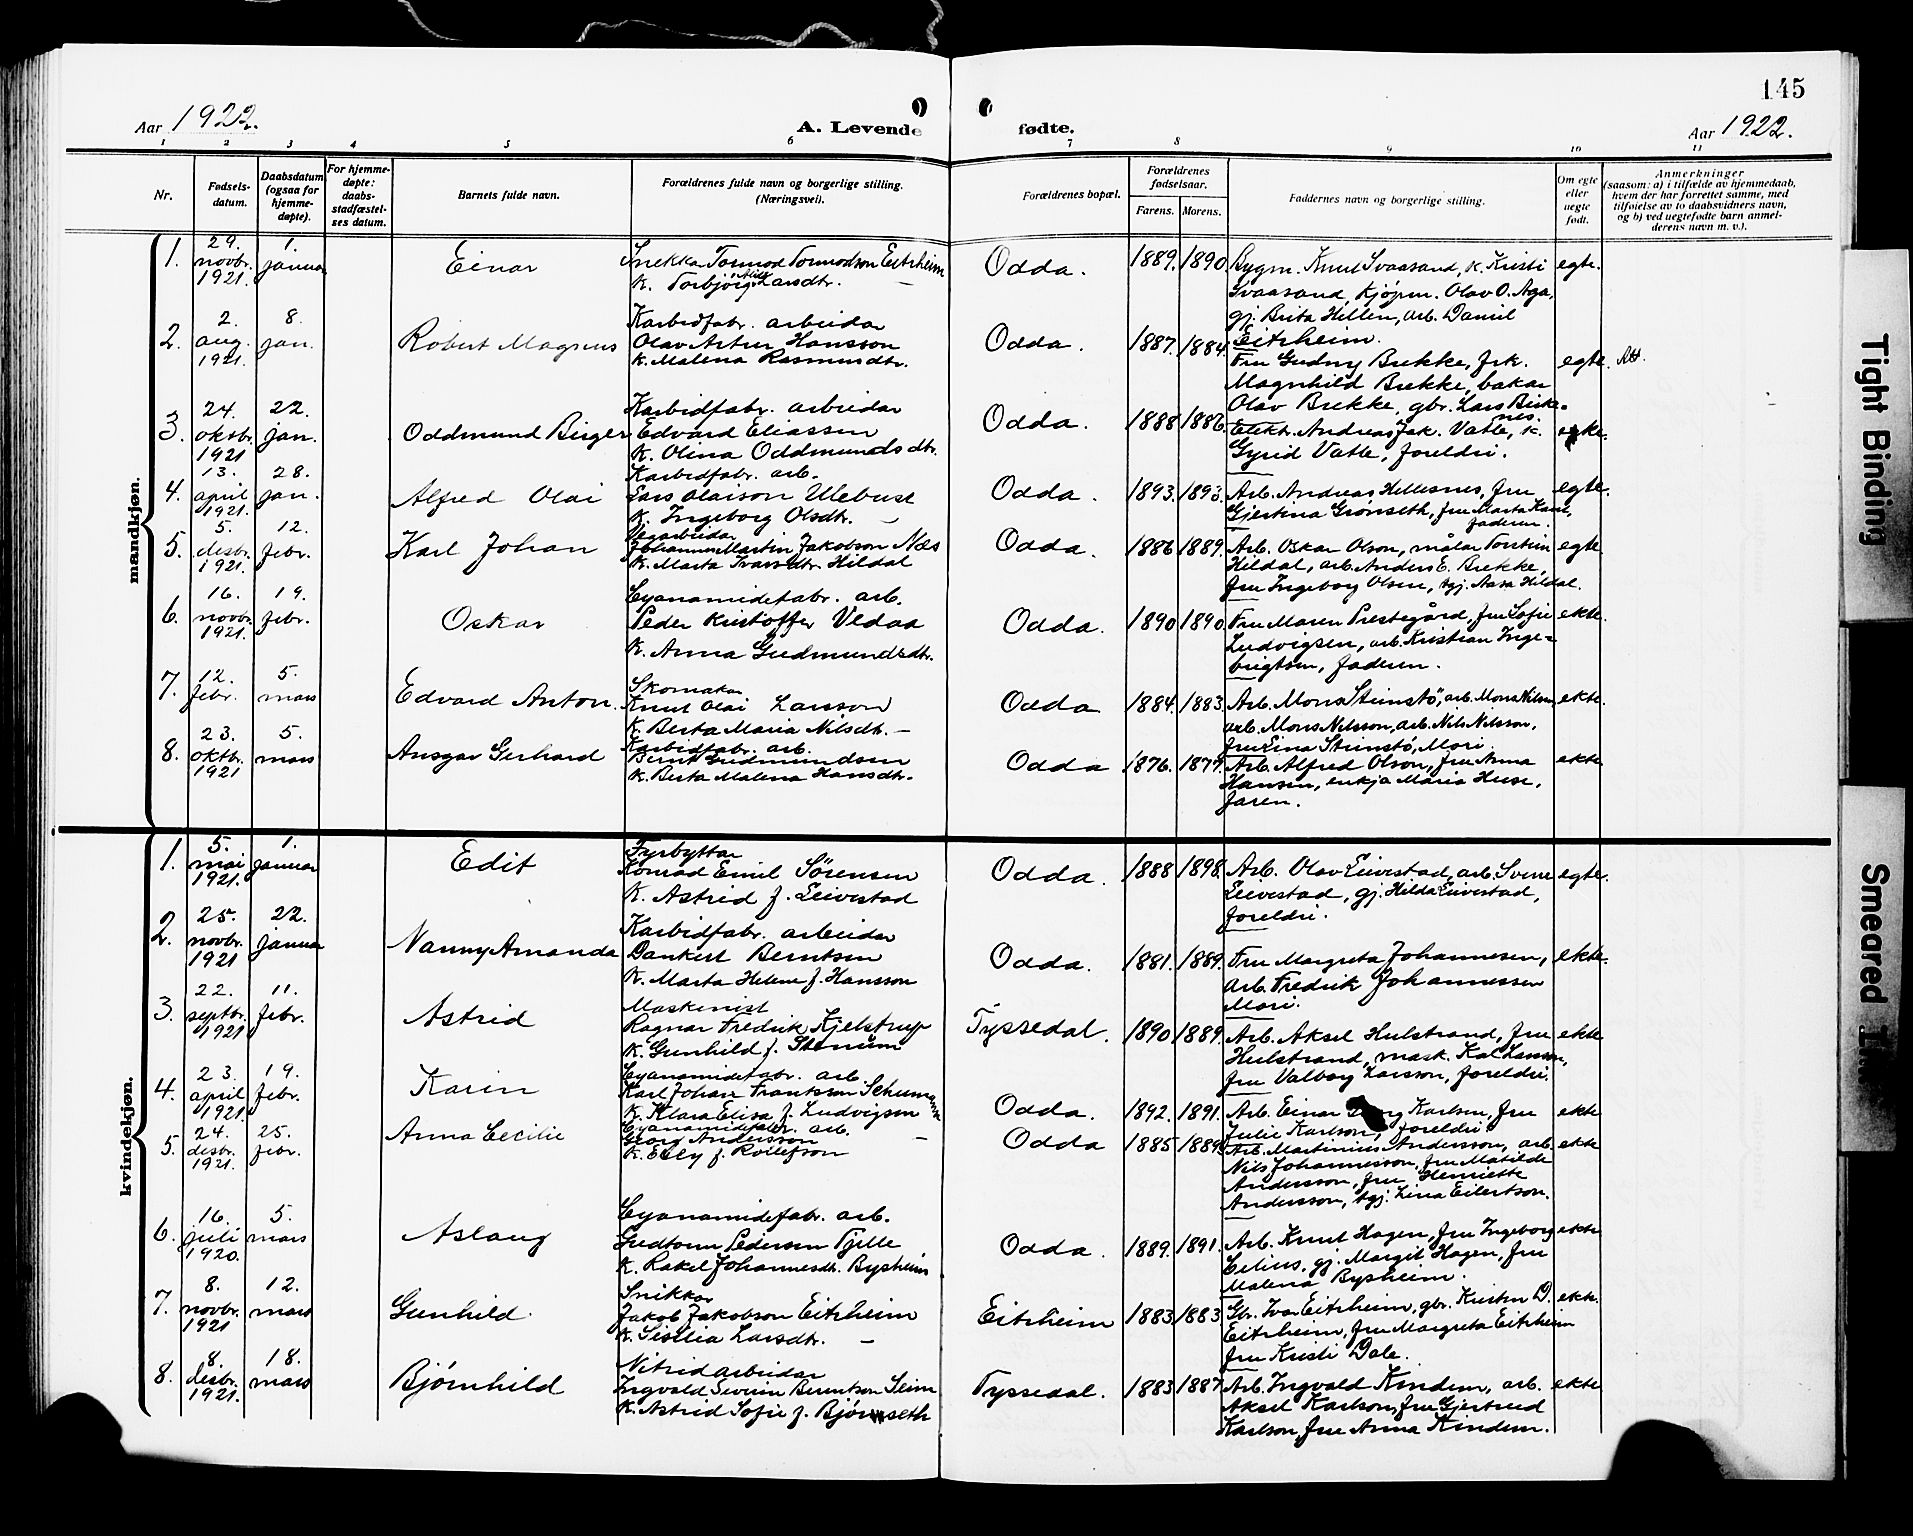 145
Aar 1922.
A. Levende fødte.
Aar 1922.
1 2 3 4 5 6 7 8 9 10 11
Nr.
Fødsels-
datum.
Daabsdatum
(ogsaa for
hjemme-
døpte).
For hjemme-
døpte:
daabs-
stadfæstel-
ses datum.
Barnets fulde navn.
Forældrenes fulde navn og borgerlige stilling.
(Næringsvei).
Forældrenes bopæl.
Forældrenes
fødselsaar.
Farens. Morens.
Faddernes navn og borgerlige stilling.
Om egte
eller
uegte
født.
Anmerkninger
(saasom: a) i tilfælde av hjemmedaab,
hvem der har forrettet samme, med
tilføielse av to daabsvidners navn,
og b) ved uegtefødte barn anmel-
derens navn m. v.).
mandkjøn.
1.
29.
novbr.
1921.
1.
januar
Einar
Snekkar Tormod Tormodson Eitrheim
K. Torbjørg Larsdtr.
Odda.
1889. 1890
Bygm. Knut Svaasand, k. Kristi
Svaasand, Kjøpm. Olav O. Aga,
gj. Brita Hillen, arb. Daniel
Eitrheim.
egte.
2.
2.
aug.
1921.
8.
jan.
Robert Magnus
Karbidfabr. arbeidar
Olav Artur Hansson
K. Malena Rasmusdtr.
Odda.
1887. 1884.
Fru Gudny Brekke, frk.
Magnhild Brekke, bakar
Olav Brekke, gbr. Lars Birke-
nes.
egte.
Att.
3.
24.
oktbr.
1921
22.
jan.
Oddmund Birger
Karbidfabr. arbeidar
Edvard Eliassen
K. Olina Oddmundsdtr.
Odda.
1888 1886.
Elektr. Andreas Jak. Vatle, k.
Gyrid Vatle, foreldri.
egte.
4.
13.
april
1921.
28.
jan.
Alfred Olai
Karbidfabr. arb.
Lars Olaison Ulebust
K. Ingeborg Olsdtr.
Odda.
1893. 1893.
Arb. Andreas Hellesnes, fru
Gjertina Grønseth, fru Marta
faderen.
egte.
5.
5.
desbr.
1921.
12.
febr.
Karl Johan
Vegarbeidar
Johannes Martin Jakobson Næs
K. Marta Ivarsdtr. Hildal
Odda.
1886 1889.
Arb. Oskar Olson, målar Torstein
Hildal, arb. Anders E. Brekke,
fru Ingeborg Olsen, ugj. Aasa Hildal.
egte
6.
16.
novbr.
1921.
19.
febr.
Oskar
Cyanamidefabr. arb.
Peder Kristoffer Vedaa
K. Anna Gudmundsdtr.
Odda.
1890 1890.
Fru Maren Prestegård, fru Sofie
Ludvigsen, arb. Kristian Inge-
brigtsen, faderen.
ekte.
7.
12.
febr.
5.
mars
Edvard Anton.
Skomakar
Knut Olai Larsson
K. Berta Maria Nilsdtr.
Odda.
1884. 1883.
Arb. Mons Steinstø, arb. Mons Nilsen
arb. Mons Nilsson, arb. Nils Nilsson,
fru Lina Steinstø, Mori
ekte.
8.
23.
oktbr.
1921
5.
mars
Ansgar Gerhard
Karbidfabr. arb.
Bernt Gudmundsen
K. Berta Malena Hansdtr.
Odda
1876. 1877.
Arb. Alfred Olson, fru Anna
Hansen, enkja Maria Huse,
faren.
ekte
kvindekjøn.
1.
5.
mai
1921.
1.
januar
Edit
Fyrbyttar
Konrad Emil Sørensen
K. Astrid f. Leivestad
Odda.
1888 1898.
Arb. Olav Leivestad, arb. Sveine
Leivestad, gj. Hilda Leivestad,
foreldri.
egte.
2.
25.
novbr.
1921
22.
januar
Nanny Amanda
Karbidfabr. arbeidar
Dankert Berntsen
K. Marta Helene f. Hansson
Odda.
1881. 1889.
Fru Margreta Johannesen,
arb. Fredrik Johannessen
Mori.
ekte.
3.
22.
septbr.
1921
11.
febr.
Astrid
Maskinist
Ragnar Fredrik Kjelstrup
K. Gunhild f. Stenum
Tyssedal.
1890 1889.
Arb. Aksel Hulstrand, fru
Hulstrand, mask. Kal Larsson,
fru Valborg Larsson, foreldri.
ekte
4.
23.
april
1921.
19.
febr.
Karin
Cyanamidefabr. arb.
Karl Johan Frantsson Schumann
K. Klara Elisa f. Ludvigson
Odda.
1892. 1891.
Arb. Einar Karlsen, fru
Julie Karlson, foreldri
ekte
5.
24.
desbr.
1921.
25.
febr.
Anna Cecilie
Cyanamidefabr. arb.
Georg Andersson
K. Elly f. Rollefson
Odda
1885 1889.
Arb. Martinius Andersson, arb.
Nils Johannesson, fru Matilde
Andersson, fru Henriette
Andersson, ugj. Lina Eilertson.
ekte
6.
16.
juli
1920.
5.
mars
Aslaug
Cyanamidefabr. arb.
Gudtorm Pedersen Tjelle
K. Rakel Johannesdtr. Bysheim
Odda.
1889. 1891.
Arb. Knut Hagen, fru Ingeborg
Eilius, gj. Margit Hagen, fru
Malena Bysheim.
ekte
7.
8.
novbr.
1921
12.
mars
Gunhild.
Snikkar
Jakob Jakobson Eitrheim
K. Gisilia Larsdtr.
Eitrheim
1883 1883
Gbr. Ivar Eitrheim, gbr. Kristen D.
Eitrheim, fru Margreta Eitrheim
fru Kristi Dale.
ekte.
8.
8.
desbr.
1921.
18.
mars
Bjørnhild
Nitridarbeidar
Ingvald Severin Berentson Seim
K. Astrid Sofie f. Bjørnseth
Tyssedal.
1883 1887
Arb. Ingvald Kindem, arb.
Aksel Karlson, fru Gjertrud
Karlson, fru Anna Kindem.
ekte
Tight Binding
Smeared